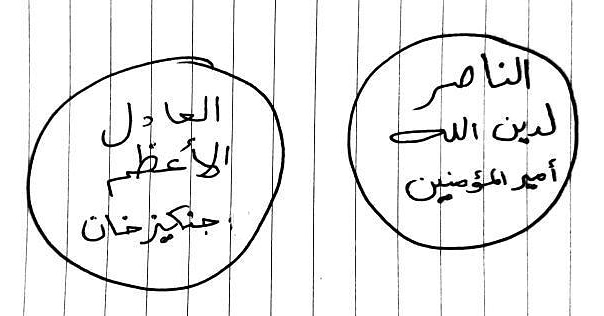 الناصر
لدين الله
أمير المؤمنين
العادل
الأعظم
جنكيز خان